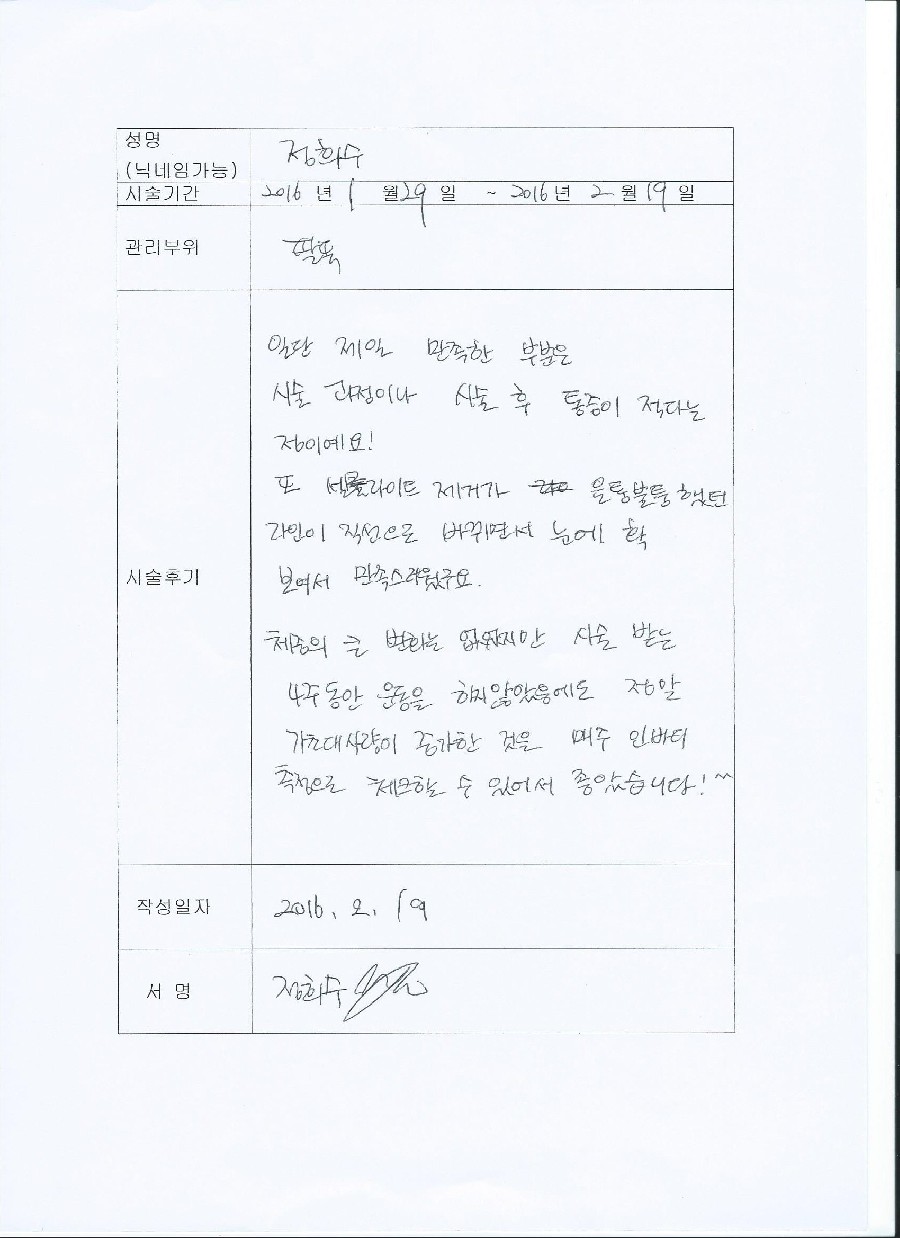 성명
(닉네임가능)
정희수
시술기간
2016 년 1 월 29 일 ~ 2016 년 2 월 19 일
관리부위
팔뚝
시술후기
일단 제일 만족한 부분은
시술 과정이나 시술 후 통증이 적다는
점이예요!
또 셀룰라이트 제거가 울퉁불퉁 했던
라인이 직선으로 바뀌면서 눈에 확
보여서 만족스러웠구요.
체중의 큰 변화는 없었지만 시술 받는
4주동안 운동을 하지않았음에도 정말
기초대사량이 증가한 것을 매주 인바디
측정으로 체크할 수 있어서 좋았습니다! ^^
작성일자
2016. 2. 19
서 명
정희수